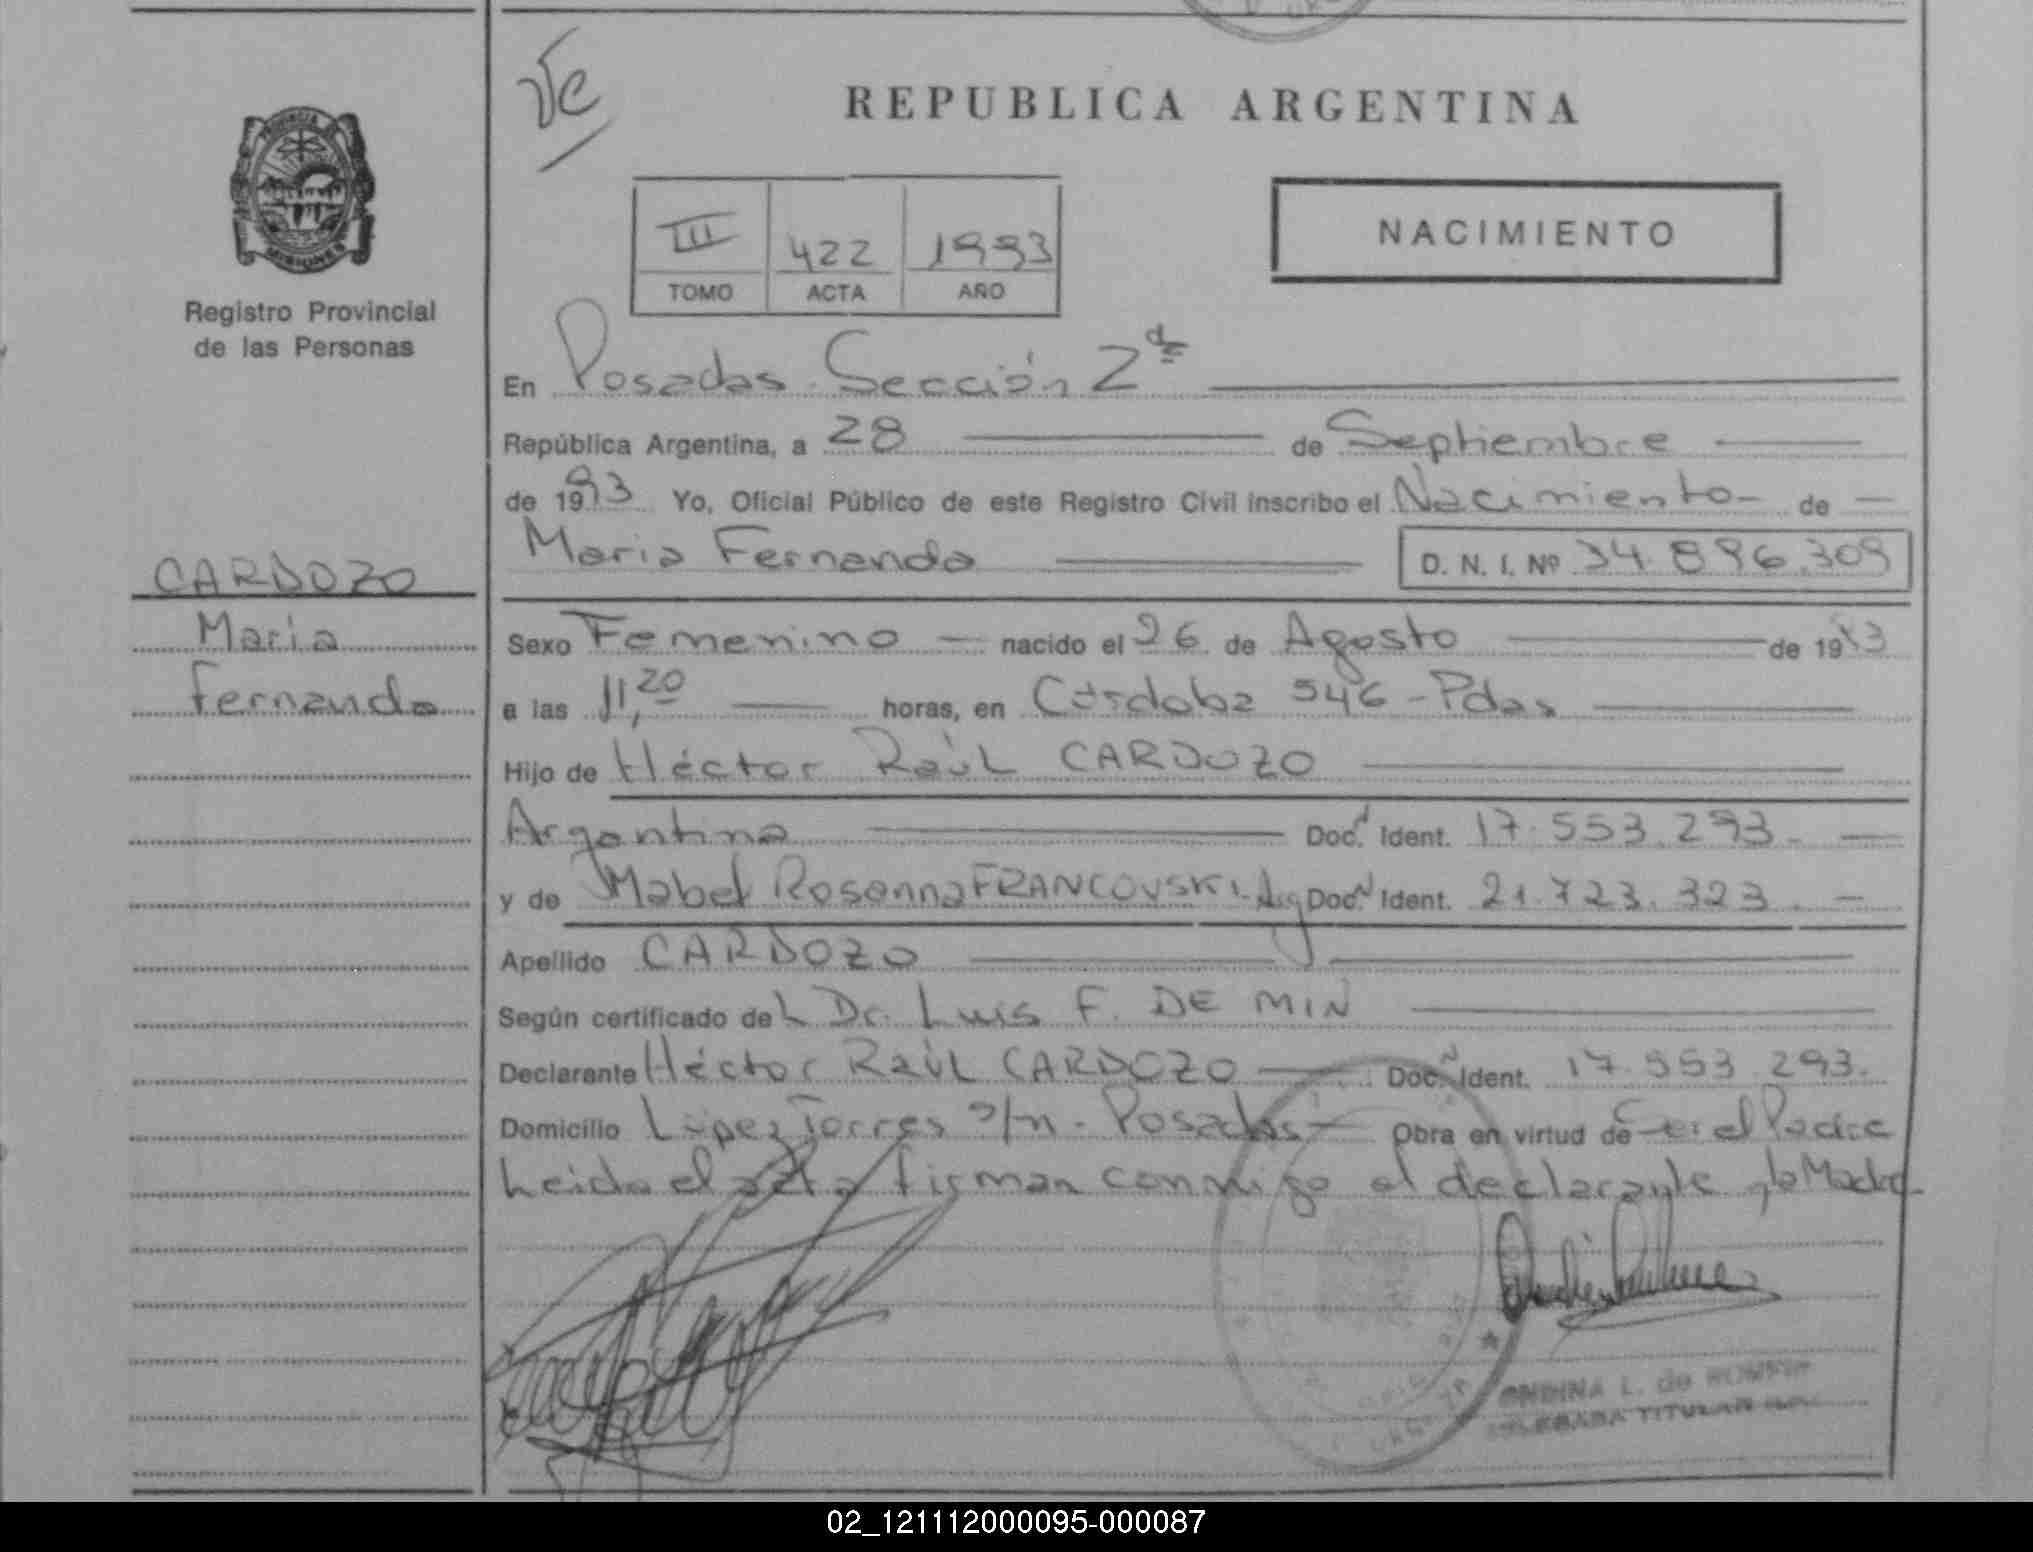 REPUBLICA ARGENTINA
NACIMIENTO
III 422 1993
TOMO ACTA AÑO
PROVINCIA DE
MISIONES
Registro Provincial
de las Personas
CARDOZO
Maria
Fernanda
En Posadas Sección 2da
República Argentina, a 28 de Septiembre
de 1993 Yo, Oficial Público de este Registro Civil inscribo el Nacimiento de
Maria Fernanda D. N. I. Nº 34.896.309
Sexo Femenino nacido el 26 de Agosto de 1993
a las 11,20 horas, en Córdoba 546 - Pdas
Hijo de Héctor Raúl CARDOZO
Argentina Doc. Ident. 17.553.293.
y de Mabel Rosanna FRANCOVSKI. Arg Doc. Ident. 21.723.323.
Apellido CARDOZO
Según certificado del Dr. Luis F. DE MIN
Declarante Héctor Raúl CARDOZO Doc. Ident. 17.553.293.
Domicilio López Torres s/n - Posadas Obra en virtud de Ser el Padre
Leida el acta firman conmigo el declarante y la Madre
L. de
TITULAR
02_121112000095-000087